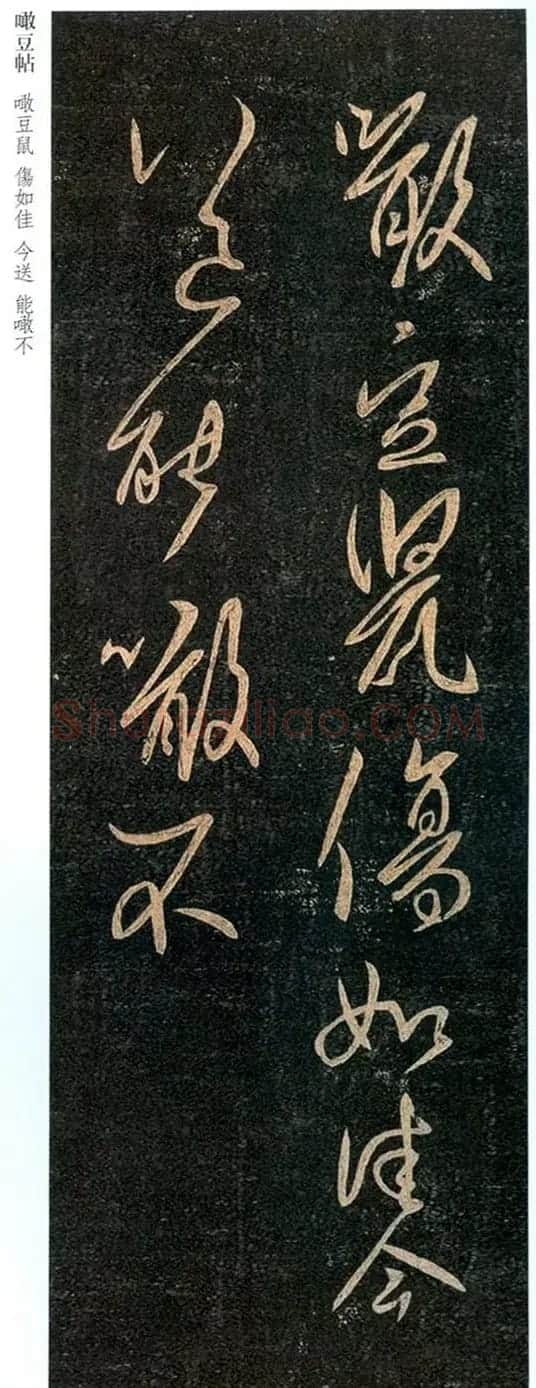 噉豆鼠傷如佳今
送能噉不
噉豆帖 噉豆鼠 傷如佳 今送 能噉不